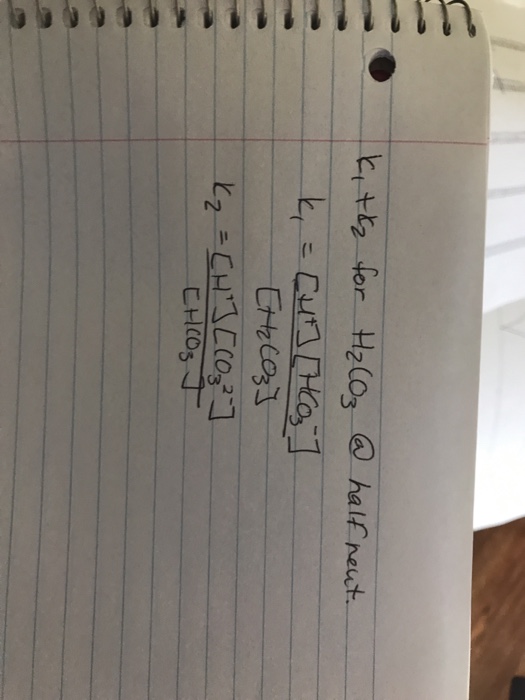 k₁ + k₂ for H₂CO₃ @ half neut.
k₁ = [H⁺][HCO₃⁻]
[H₂CO₃]
k₂ = [H⁺][CO₃²⁻]
[HCO₃]